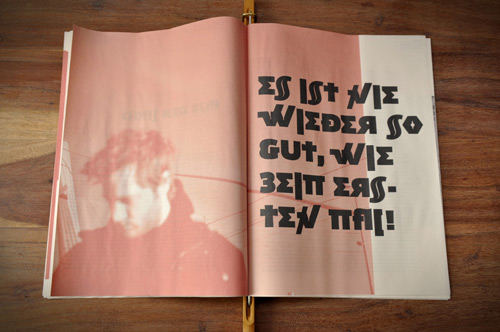 ES IST NIE
WIEDER SO
GUT, WIE
BEIM ERS-
TEN MAL!